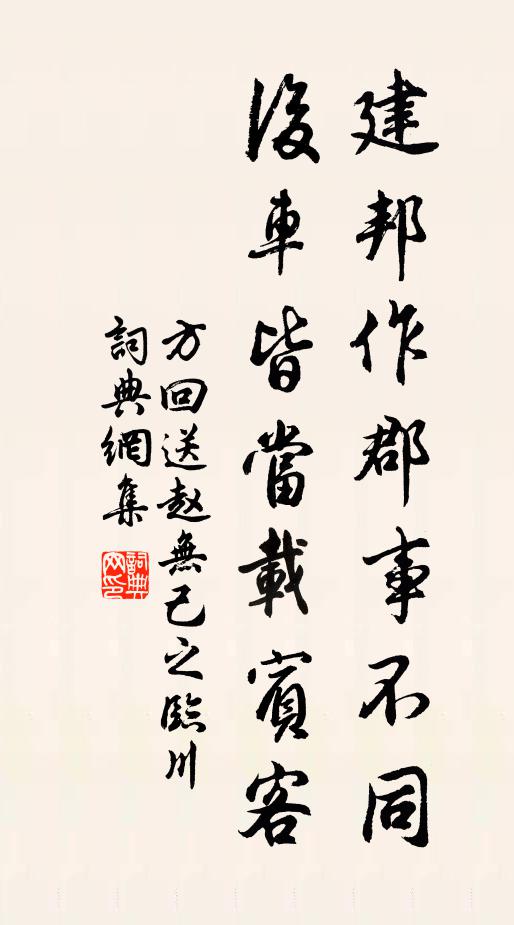 建邦作郡事不同
後車皆當載賓客
方回送赵無己之臨川
詞典網集
詞典网印